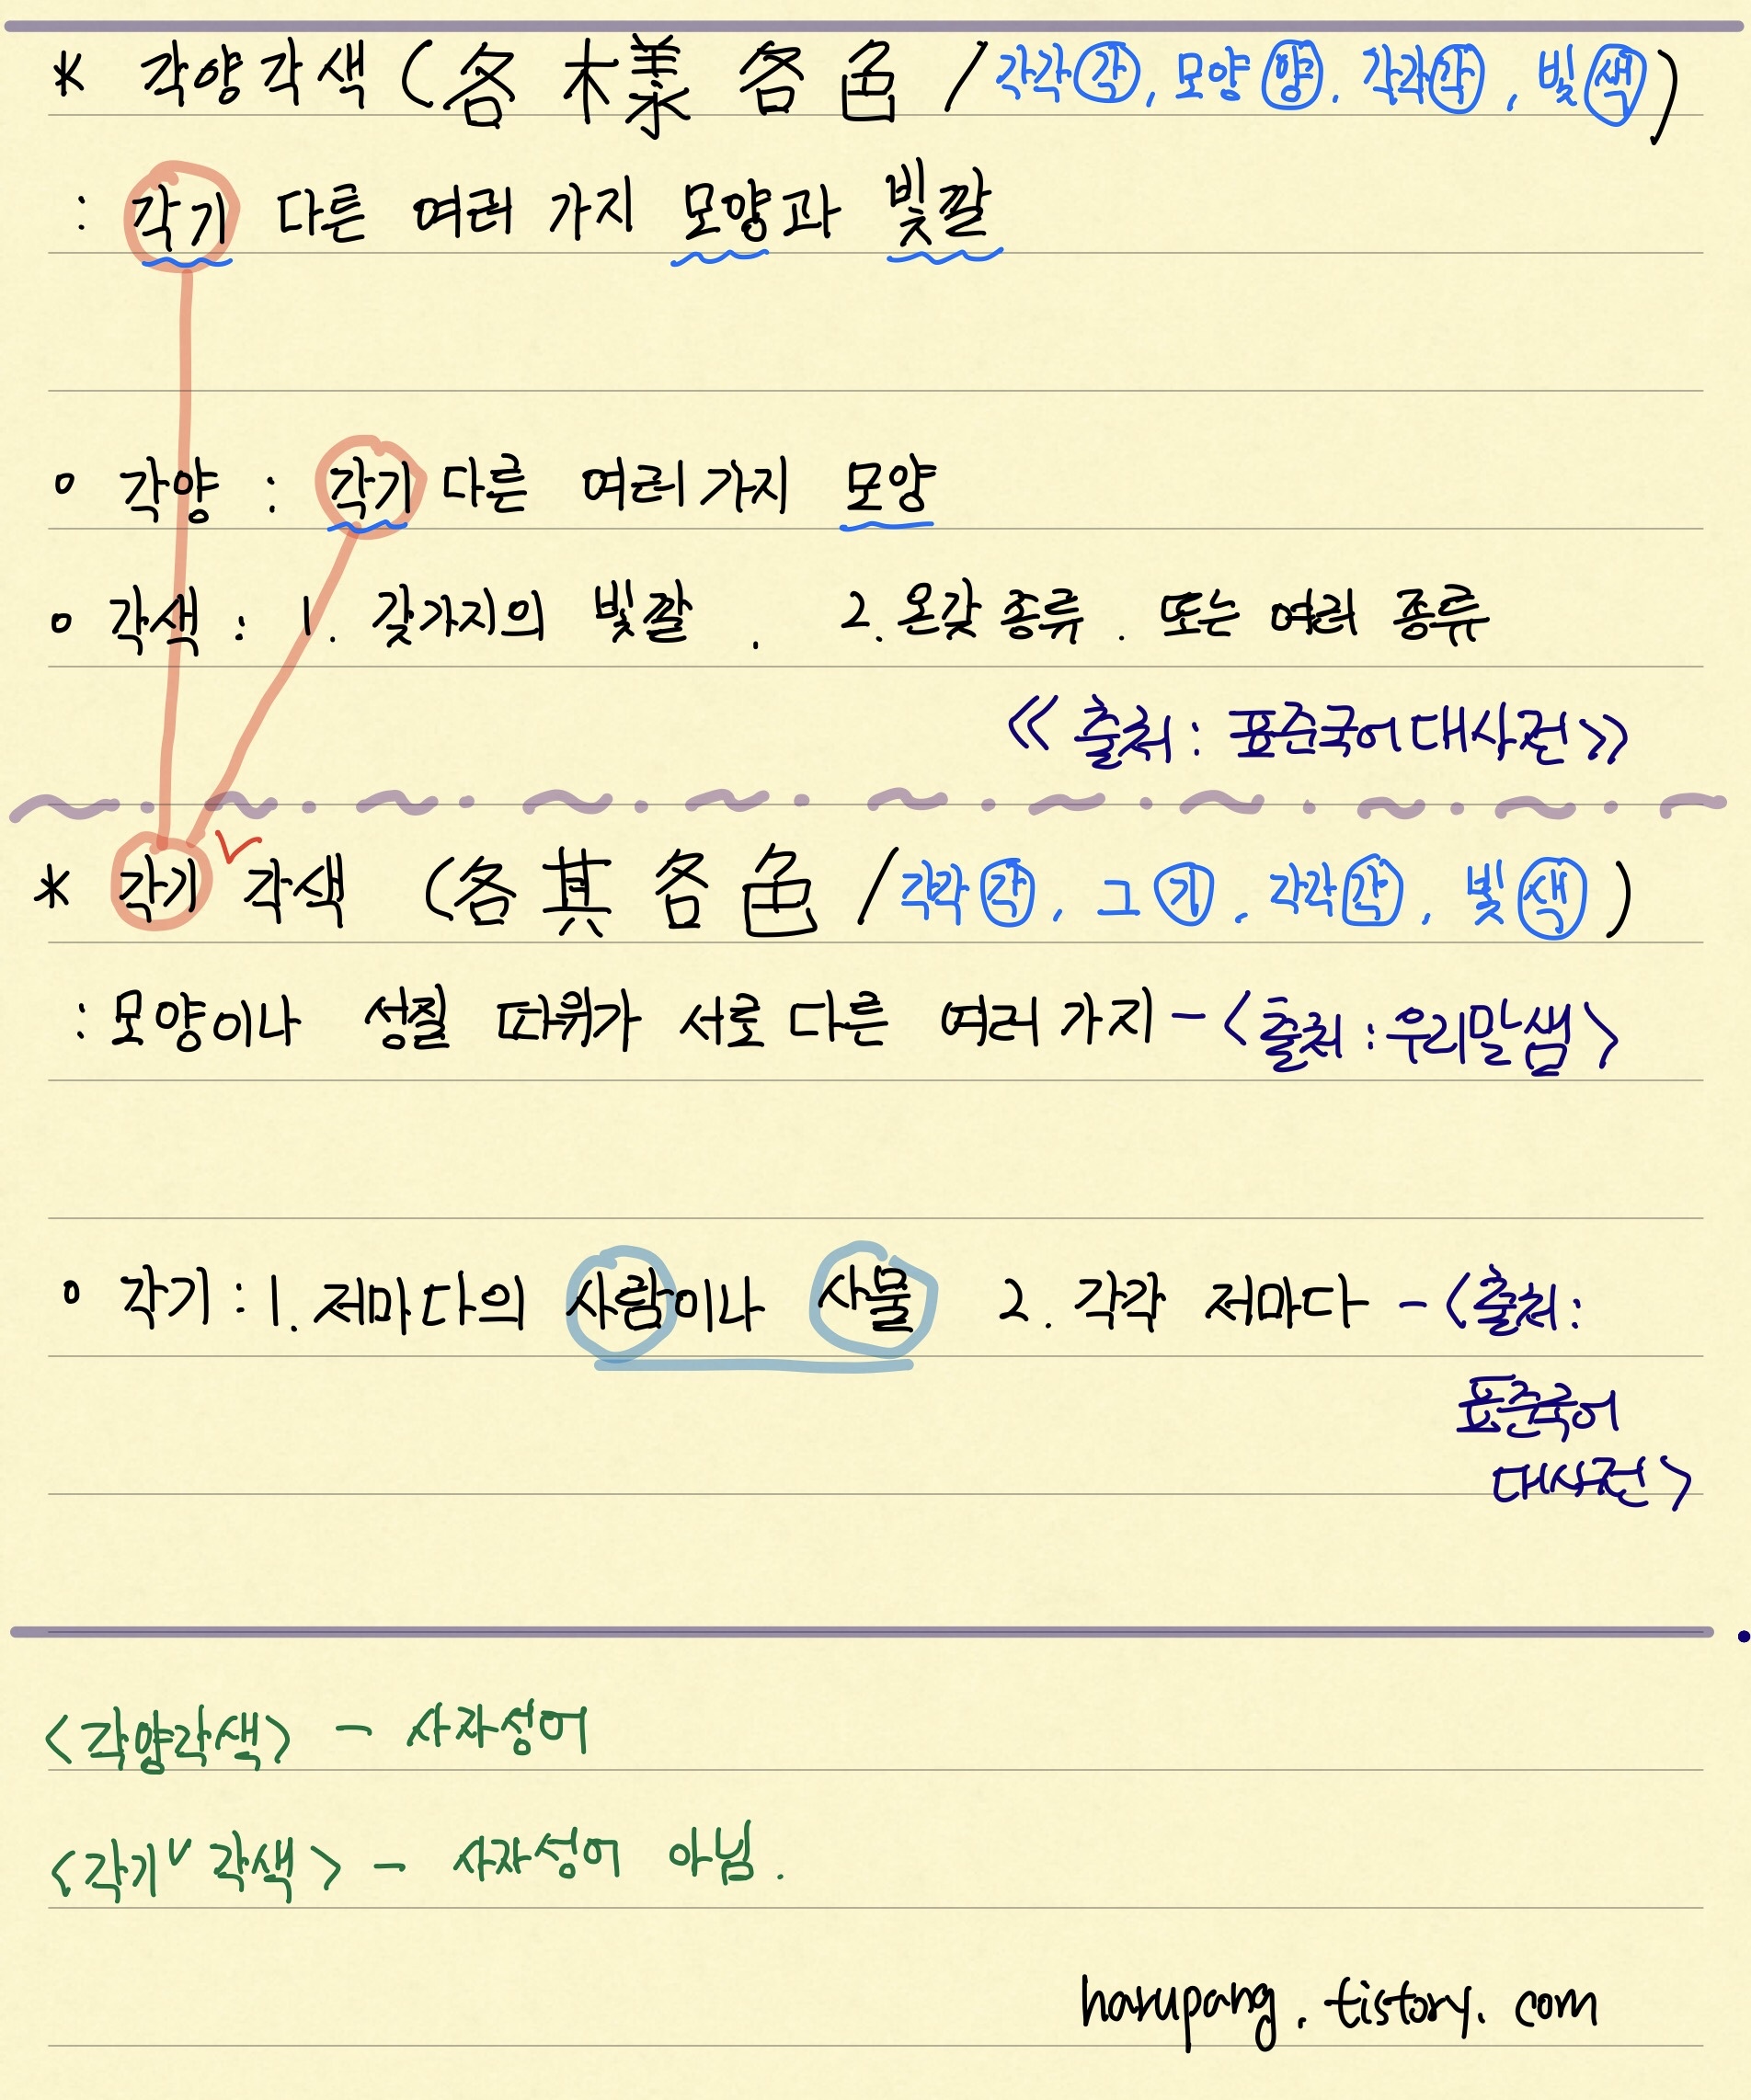 * 각양각색 (各樣各色 / 각각 각, 모양 양, 각각 각, 빛 색)
: 각기 다른 여러 가지 모양과 빛깔
○ 각양 : 각기 다른 여러 가지 모양
○ 각색 : 1. 갖가지의 빛깔. 2. 온갖 종류. 또는 여러 종류
《출처 : 표준국어대사전》
* 각기∨각색 (各其各色 / 각각 각, 그 기, 각각 각, 빛 색)
: 모양이나 성질 따위가 서로 다른 여러 가지 - <출처 : 우리말샘>
○ 각기 : 1. 저마다의 사람이나 사물 2. 각각 저마다 - <출처 :
표준국어
대사전>
<각양각색> - 사자성어
<각기∨각색> - 사자성어 아님.
harupang.tistory.com